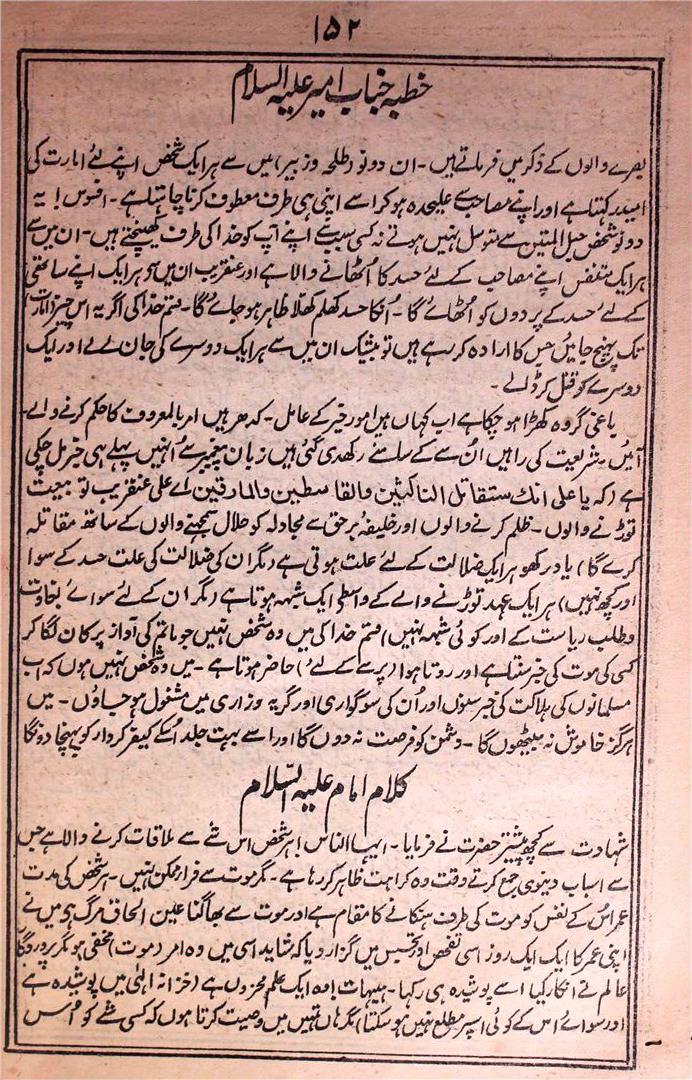 ۱۵۲
خطبہ جناب امیر علیہ السلام
بصرے والوں کے ذکر میں فرماتے ہیں۔ ان دونو (طلحہ و زبیر) میں سے ہر ایک شخص اپنے لئے امارت کی
امید رکہتا ہے اور اپنے مصاحب سے علیحدہ ہو کر اسے اپنی ہی طرف معطوف کرنا چاہتا ہے۔ افسوس! یہ
دونو شخص حبل المتین سے متوسل نہیں ہوتے نہ کسی سبب سے اپنے آپ کو خدا کی طرف کھینچتے ہیں۔ ان میں سے
ہر ایک متنفس اپنے مصاحب کے لئے حسد کا اُٹھانے والا ہے اور عنقریب ان میں سے ہر ایک اپنے ساتھی
کے لئے حسد کے پردوں کو اُٹھائے گا۔ اُنکا حسد کھلم کھلا ظاہر ہو جائے گا۔ قسم خدا کی اگر یہ اس چیز (امارت)
تک پہنچ جائیں جس کا ارادہ کر رہے ہیں تو بیشک ان میں سے ہر ایک دوسرے کی جان لے لے اور ایک
دوسرے کو قتل کر ڈالے۔
باغی گروہ کھڑا ہو چکا ہے اب کہاں ہیں امور خیر کے عامل۔ کدھر ہیں امر بالمعروف کا حکم کرنے والے
آئیں۔ شریعت کی راہیں اُن سے کے سامنے رکھدی گئی ہیں زبان پیغمبر سے اُنہیں پہلے ہی خبر مل چکی
ہے (کہ یا علی انك ستقاتل الناکثین والقاسطین والمارقین اے علی عنقریب تو بیعت
توڑنے والوں۔ ظلم کرنے والوں اور خلیفہ برحق سے مجادلہ کو حلال سمجہنے والوں کے ساتھ مقاتلہ
کرے گا) یاد رکھو ہر ایک ضلالت کے لئے علت ہوتی ہے (مگر ان کی ضلالت کی علت حسد کے سوا
اور کچھ نہیں) ہر ایک عہد توڑنے والے کے واسطے ایک شبہہ ہوتا ہے (مگر ان کے لئے سوائے بغاوت
و طلب ریاست کے اور کوئی شبہہ نہیں) قسم خدا کی میں وہ شخص نہیں جو ماتم کی آواز پر کان لگا کر
کسی کی موت کی خبر سنتا ہے اور روتا ہوا (پرسے کے لئے) حاضر ہوتا ہے۔ میں وہ شخص نہیں ہوں کہ اب
مسلمانوں کی ہلاکت کی خبر سنوں اور اُن کی سوگواری اور گریہ وزاری میں مشغول ہو جاؤں۔ میں
ہرگز خاموش نہ بیٹھوں گا۔ دشمن کو فرصت نہ دوں گا اور اسے بہت جلد اُسکے کیفر کردار کو پہنچا دونگا
کلام امام علیہ السّلام
شہادت سے کچھ پیشتر حضرت نے فرمایا۔ ایہا الناس! ہر شخص اس شے سے ملاقات کرنے والا ہے جس
سے اسباب دنیوی جمع کرتے وقت وہ کراہت ظاہر کر رہا ہے۔ مگر موت سے فرار ممکن نہیں۔ ہر شخص کی مدت
عمر اُس کے نفس کو موت کی طرف ہنکانے کا مقام ہے اور موت سے بھاگنا عین الحاق مرگ ہی میں نے
اپنی عمر کا ایک ایک روز اسی تفحص اور تجسس میں گزار دیا کہ شاید اسی میں وہ امر (موت) مخفی ہو مگر پروردگار
عالم نے انکار کیا اسے پوشیدہ ہی رکہا۔ ہیہات! وہ ایک علم مخزوں ہے (خزانہ الہٰی میں پوشیدہ ہے
اور سوائے اس کے کوئی اسپر مطلع نہیں ہو سکتا) مگر ہاں تمہیں میں وصیت کرتا ہوں کہ کسی شے کو اُس